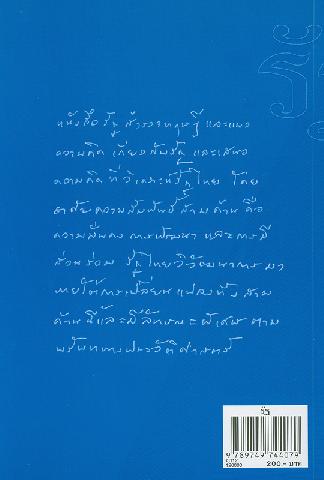 หนังสือรัฐ สำรวจทฤษฎี และแนว
ความคิด เกี่ยวกับรัฐ และเสนอ
ความคิดที่วิเคราะห์รัฐไทย โดย
อาศัยความสัมพันธ์สามด้าน คือ
ความมั่นคง การพัฒนา และการมี
ส่วนร่วม รัฐไทยวิวัฒนาการมา
ภายใต้การเปลี่ยนแปลงทั้งสาม
ด้านนี้และมีลักษณะพิเศษตาม
บริบททางประวัติศาสตร์
รัฐ
9 789749 744079
200.- บาท